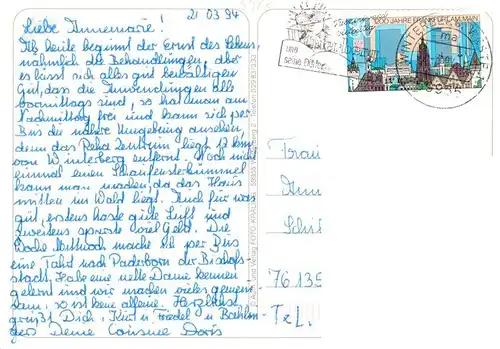 21 03 94
Liebe Annemarie!
Ab heute beginnt der Ernst des Lebens,
nähmlich die Behandlungen, aber
es lässt sich alles gut bewältigen
Gut, das die Anwendungen alle
vormittags sind, so hat man am
Nachmittag frei und kann sich per
Bus die nähere Umgebung ansehen,
denn das Reha Zentrum liegt 12 km
von Winterberg entfernt. Noch nicht
einmal einen Schaufensterbummel
kann man machen, da das Haus
mitten im Wald liegt. Auch für was
gut, erstens haste gute Luft und
zweitens sparste viel Geld. Die
Woche Mittwoch mache ich per Bus
eine Fahrt nach Paderborn der Bischofs-
stadt. Habe eine nette Dame kennen
gelernt und wir machen vieles gemein-
sam, so ist keine alleine. Herzlichst
grüßt Dich, Kurt u Friedel u
Deine Cousine Doris
1200 JAHRE FRANKFURT AM MAIN
und
seine Dörfer
WINTERB
Frau
Ann
Schil
76135